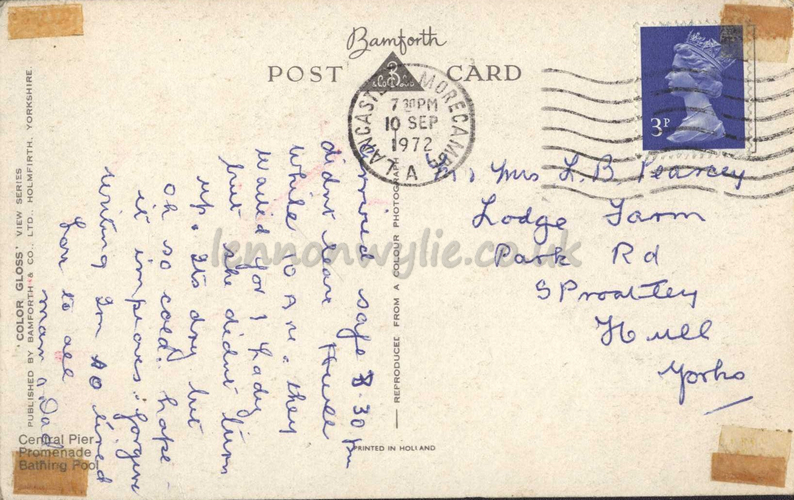 Bamforth
POST CARD
LANCASTER & MORECAMBE
7 30 PM
10 SEP
1972
LA
3P
Mr & Mrs L. B. Pearcey
Lodge Farm
Park Rd
Sproatley
Hull
Yorks
Arrived safe 8-30 pm
didnt leave Hull
while 10 A.M. they
waited for 1 Lady
but she didnt turn
up. Its dry but
oh so cold. hope
it improves. forgive
writing Im so tired
Love to all
Mam & Dad
'COLOR GLOSS' VIEW SERIES
PUBLISHED BY BAMFORTH & CO., LTD., HOLMFIRTH, YORKSHIRE.
REPRODUCED FROM A COLOUR PHOTOGRAPH
PRINTED IN HOLLAND
Central Pier
Promenade
Bathing Pool
lennonwylie.co.uk